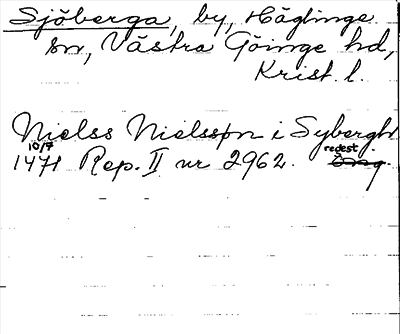 Sjöberga, by, Häglinge
sn, Västra Göinge hd,
Krist. l.
Nielss Nielsson i Sybergh
10/7 redest.
1471 Rep. II nr 2962. Orig.